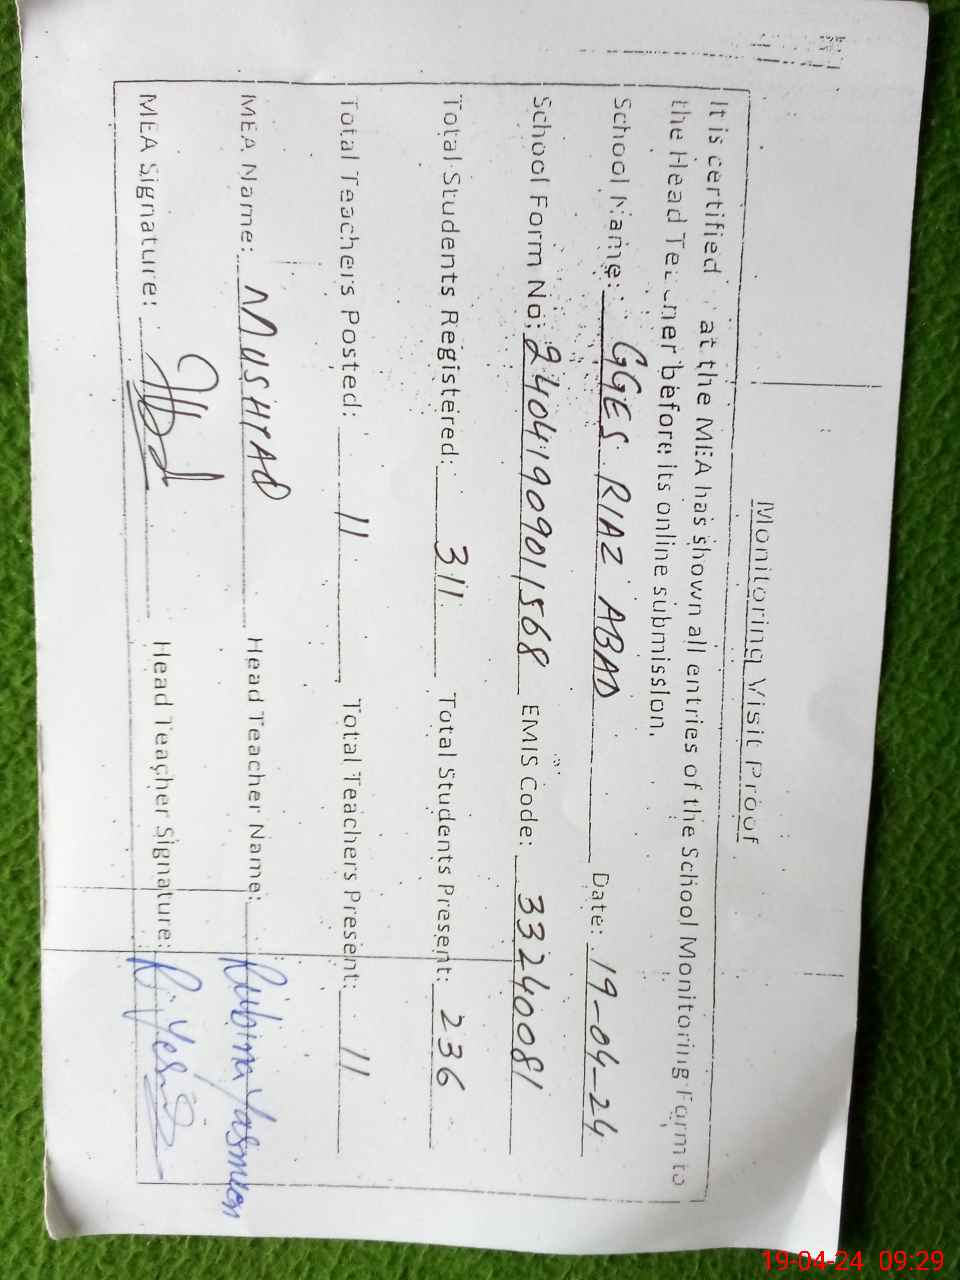 Monitoring Visit Proof
It is certified at the MEA has shown all entries of the School Monitoring Form to
the Head Teacher before its online submission.
School Name: GGES RIAZ ABAD Date: 19-04-24
School Form No: 240419090115 68 EMIS Code: 33240081
Total Students Registered: 311 Total Students Present: 236
Total Teachers Posted: 11 Total Teachers Present: 11
MEA Name: MUSHTAQ Head Teacher Name: Rubina Yasmeen
MEA Signature: Head Teacher Signature:
19-04-24 09:29